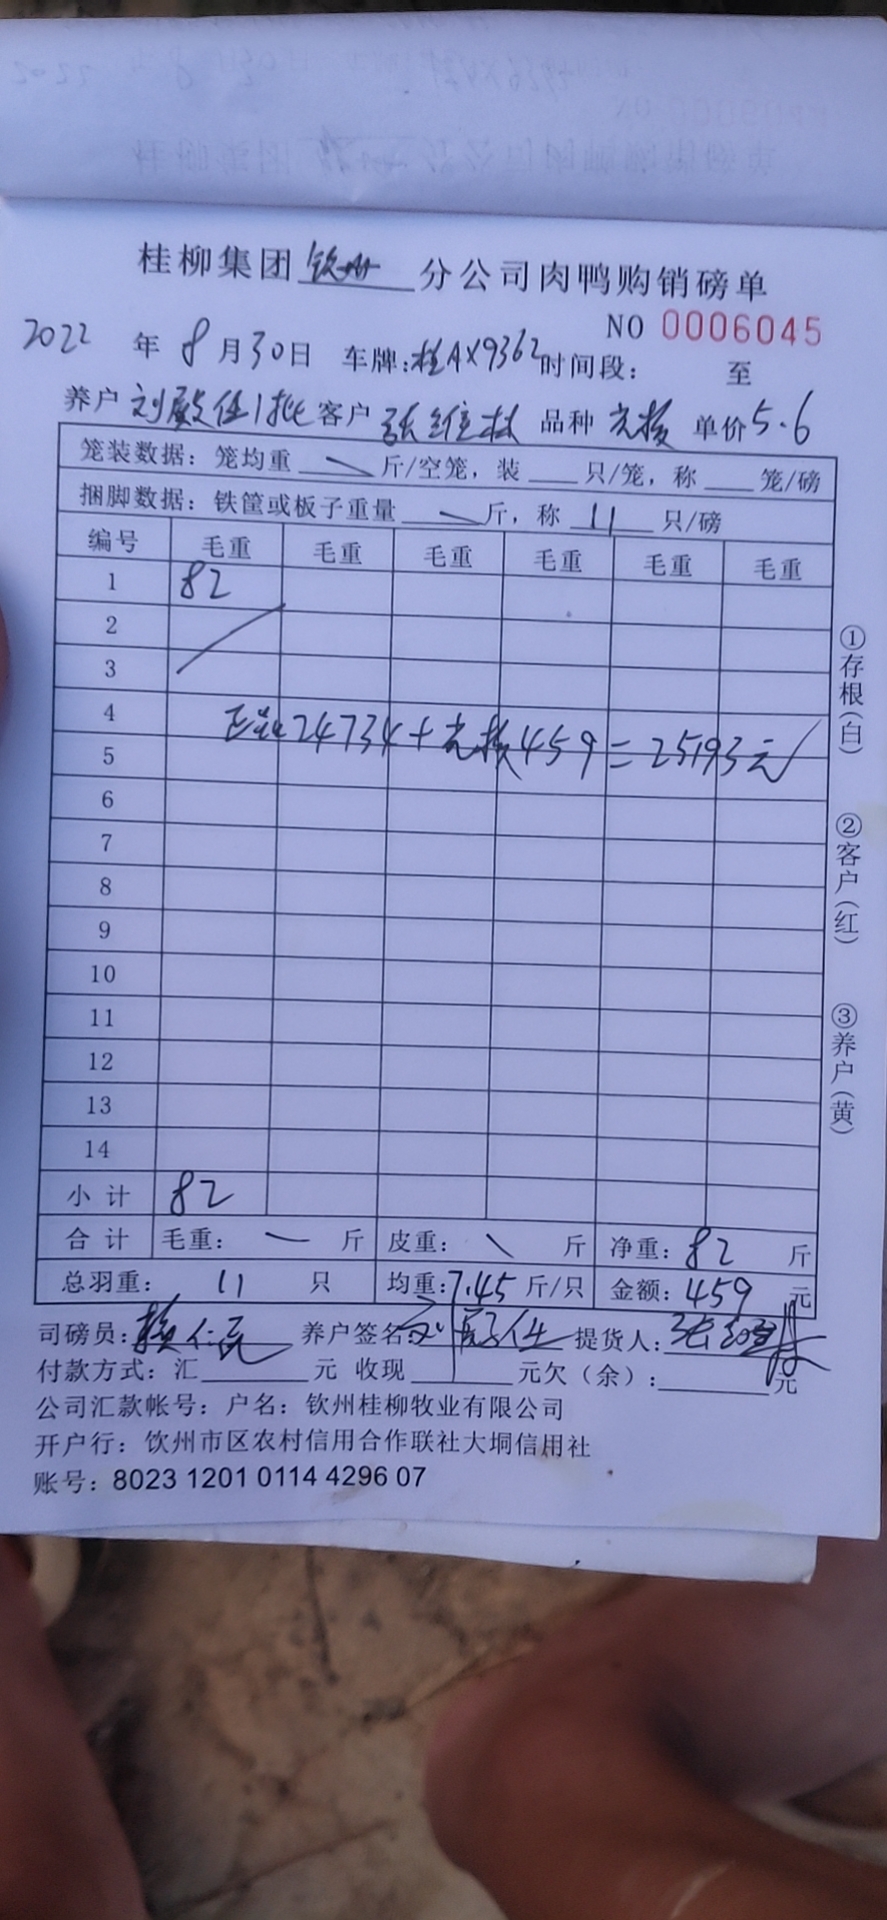 桂柳集团钦州分公司肉鸭购销磅单
NO 0006045
2022年8月30日 车牌:桂AX9362 时间段: 至
养户 刘殿任1批 客户 张维林 品种 单价5.6
笼装数据: 笼均重 斤/空笼, 装 只/笼, 称 笼/磅
捆脚数据: 铁筐或板子重量 斤, 称 11 只/磅
编号 毛重 毛重 毛重 毛重 毛重 毛重
1 82
2
3
4
24734+ 459=25193元
5
6
7
8
9
10
11
12
13
14
小计 82
合计 毛重: 斤 皮重: 斤 净重: 82 斤
总羽重: 11 只 均重:7.45斤/只 金额: 459 元
司磅员: 养户签名 刘殿任 提货人:
付款方式: 汇 元 收现 元欠(余): 元
公司汇款帐号: 户名: 钦州桂柳牧业有限公司
开户行: 钦州市区农村信用合作联社大垌信用社
账号: 8023 1201 0114 4296 07
①存根(白)
②客户(红)
③养户(黄)